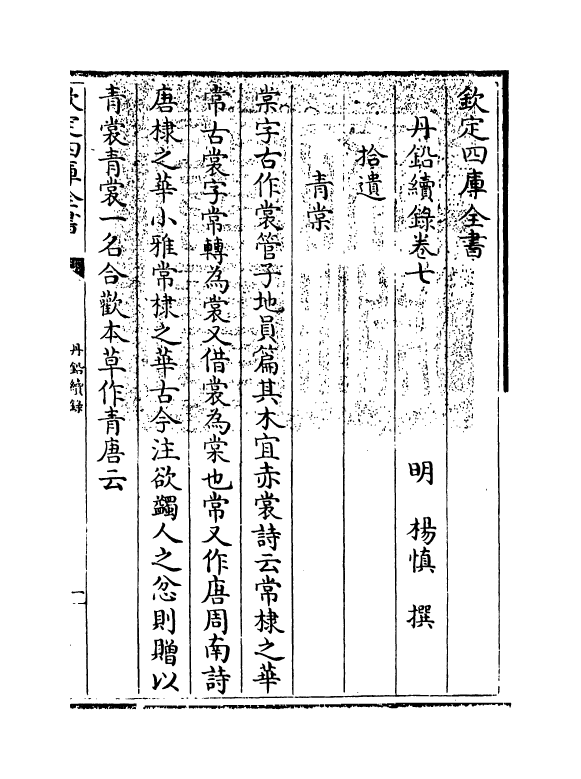 欽定四庫全書
丹鉛續錄卷七
明 楊慎 撰
拾遺
青棠
棠字古作裳管子地員篇其木宜赤裳詩云常棣之華
常古裳字常轉為裳又借裳為棠也常又作唐周南詩
唐棣之華小雅常棣之華古今注欲蠲人之忿則贈以
青裳青裳一名合歡本草作青唐云
欽定四庫全書
丹鉛續錄
一